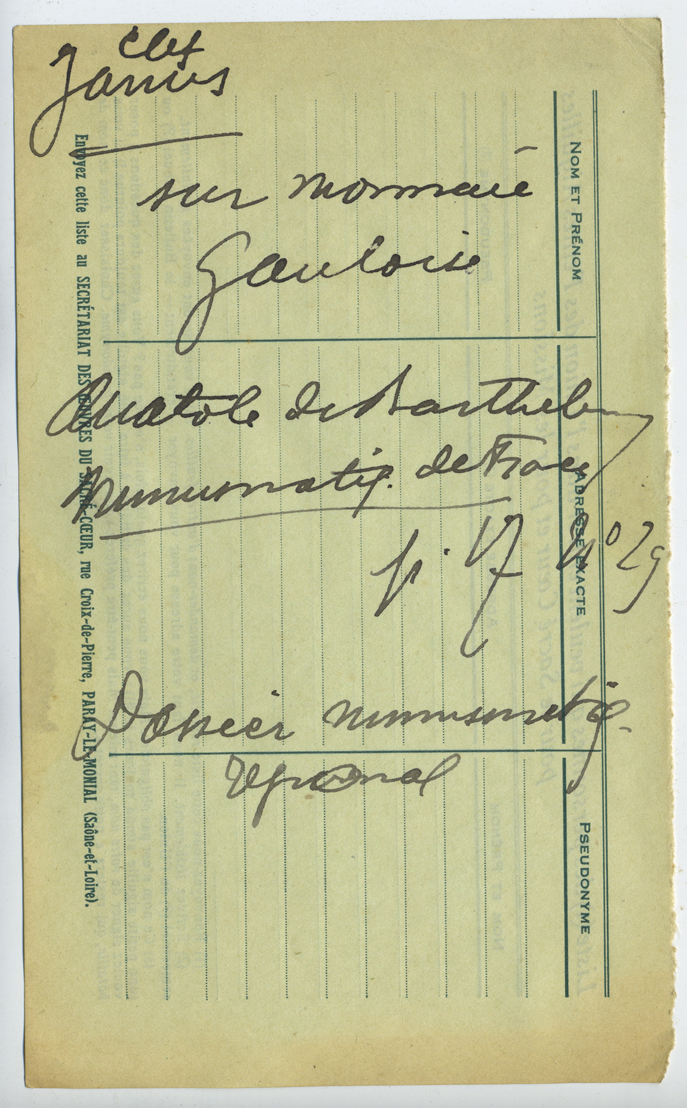 clef
Janus
sur monnaie
Gauloise
Anatole de Barthelemy
Numismatiq. de France
p. 17 No 29
Dossier numismatiq.
NOM ET PRÉNOM
ADRESSE EXACTE
PSEUDONYME
Envoyez cette liste au SECRÉTARIAT DES ŒUVRES DU SACRÉ-CŒUR, rue Croix-de-Pierre, PARAY-LE-MONIAL (Saône-et-Loire).